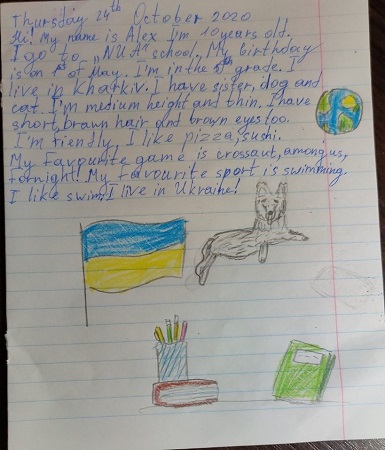 Thursday 24th October 2020
Hi! My name is Alex I'm 10 years old.
I go to „NUA" school, My birthday
is on 1st of May. I'm in the 5th grade. I
live in Kharkiv. I have sister, dog and
cat. I'm medium height and thin. I have
short, brawn hair and brown eyes too.
I'm friendly, I like pizza, sushi.
My favourite game is crossaut, among us,
fortnight. My favourite sport is swimming.
I like swim. I live in Ukraine!